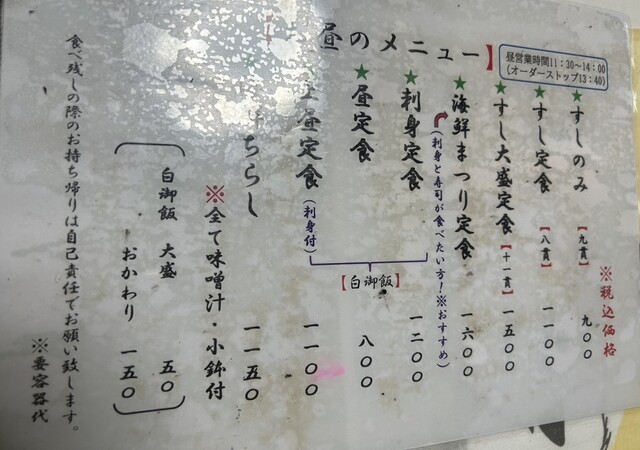 昼のメニュー】
昼営業時間11：30～14：00
（オーダーストップ13：40）
※税込価格
★すしのみ【九貫】 九〇〇
★すし定食【八貫】 一一〇〇
★すし大盛定食【十一貫】 一五〇〇
★海鮮まつり定食 一六〇〇
（刺身と寿司が食べたい方！※おすすめ）
★刺身定食 一二〇〇
★昼定食 八〇〇
昼定食（刺身付） 一一〇〇
【白御飯】
ちらし 一一五〇
※全て味噌汁・小鉢付
白御飯 大盛 五〇
おかわり 一五〇
食べ残しの際のお持ち帰りは自己責任でお願い致します。
※要容器代